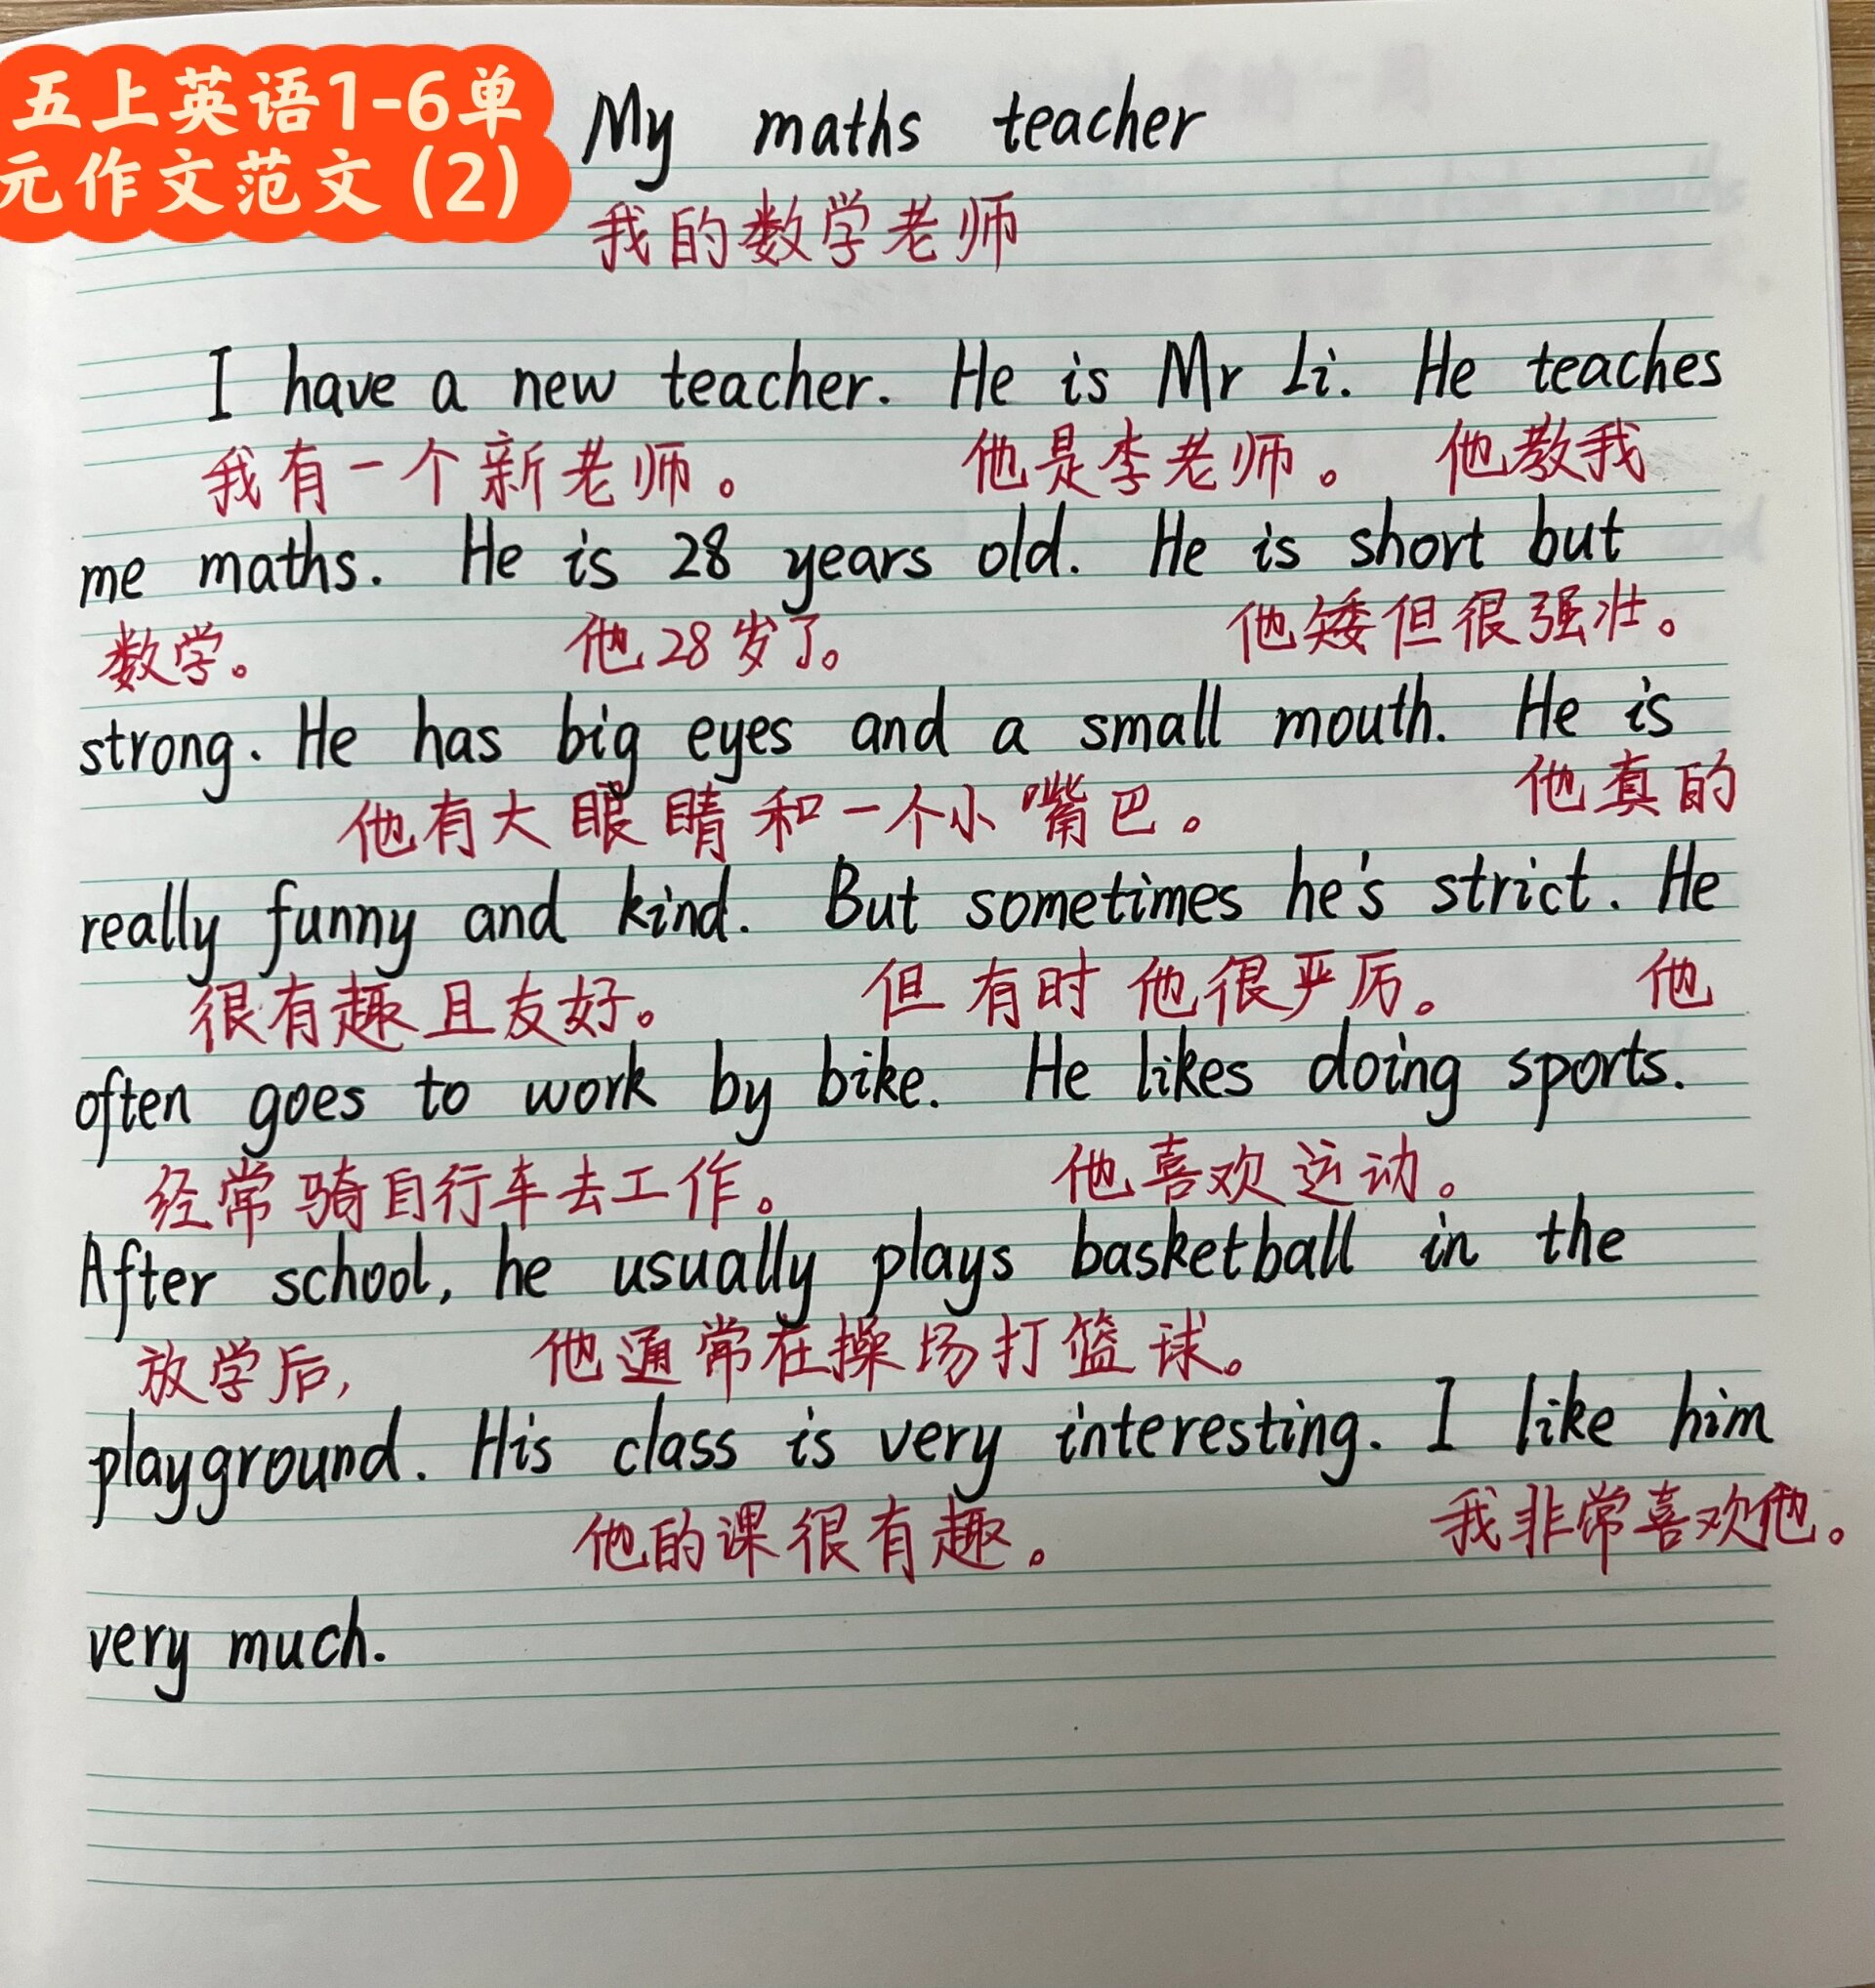 五上英语1-6单
元作文范文(2)
My maths teacher
我的数学老师
I have a new teacher. He is Mr Li. He teaches
我有一个新老师。 他是李老师。 他教我
me maths. He is 28 years old. He is short but
数学。 他28岁了。 他矮但很强壮。
strong. He has big eyes and a small mouth. He is
他有大眼睛和一个小嘴巴。 他真的
really funny and kind. But sometimes he's strict. He
很有趣且友好。 但有时他很严厉。 他
often goes to work by bike. He likes doing sports.
经常骑自行车去工作。 他喜欢运动。
After school, he usually plays basketball in the
放学后, 他通常在操场打篮球。
playground. His class is very interesting. I like him
他的课很有趣。 我非常喜欢他。
very much.